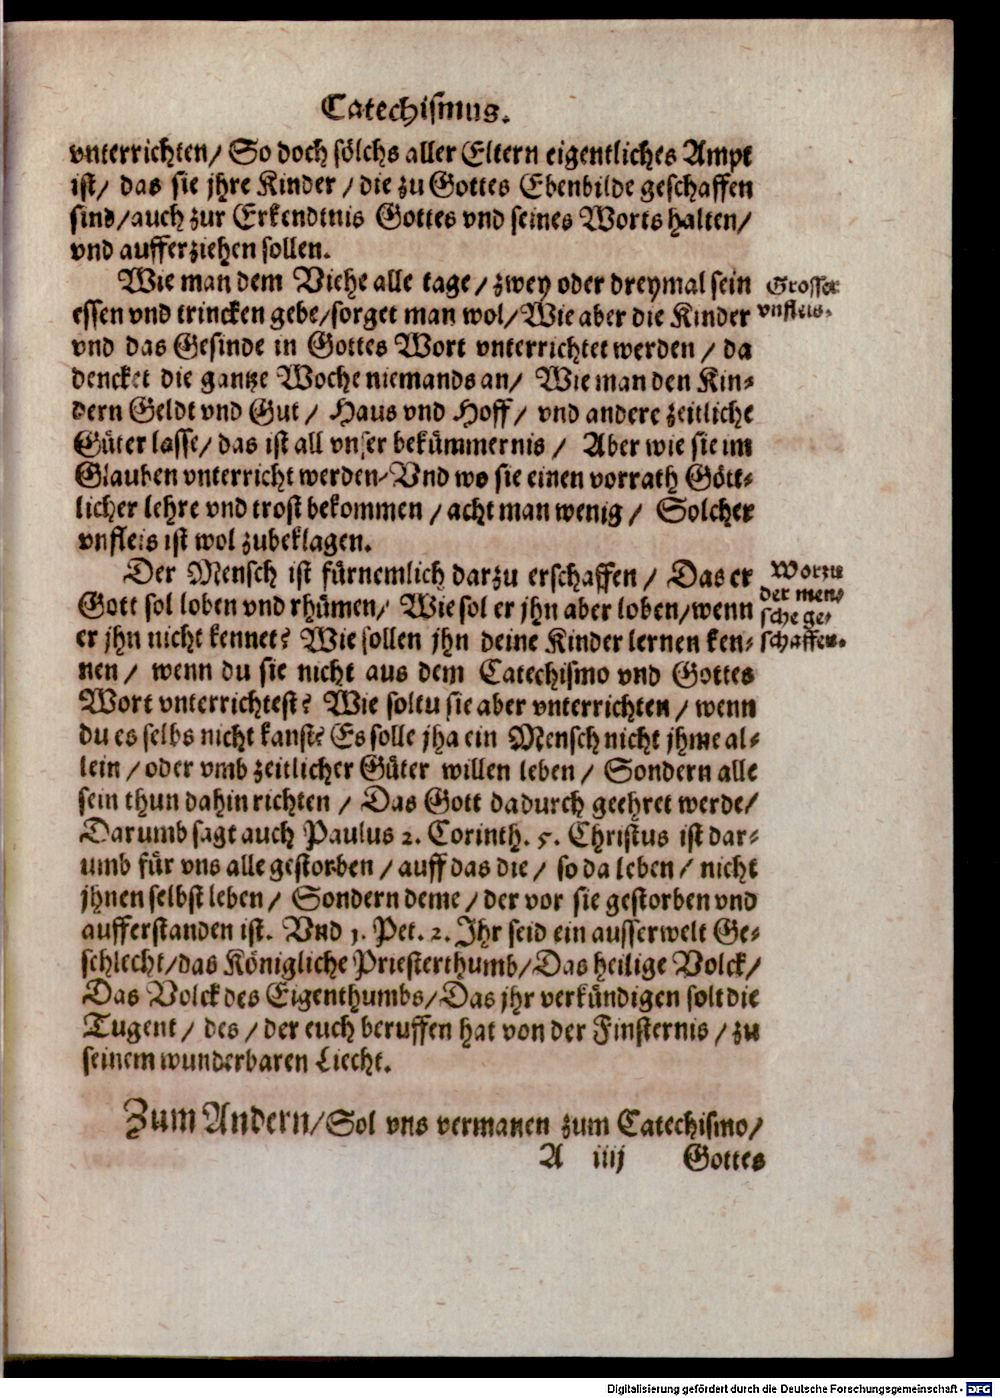 Catechismus.
vnterrichten/ So doch sölchs aller Eltern eigentliches Ampt
ist/ das sie jhre Kinder /die zu Gottes Ebenbilde geschaffen
sind/auch zur Erkendtnis Gottes vnd seines Worts halten/
vnd aufferziehen sollen.
Wie man dem Viehe alle tage / zwey oder dreymal sein
essen vnd trincken gebe/sorget man wol/ Wie aber die Kinder
vnd das Gesinde in Gottes Wort vnterrichtet werden / da
dencket die gantze Woche niemands an/ Wie man den Kin-
dern Geldt vnd Gut / Haus vnd Hoff / vnd andere zeitliche
Güter lasse/ das ist all vnser bekümmernis / Aber wie sie im
Glauben vnterricht werden/Vnd wo sie einen vorrath Gött-
licher lehre vnd trost bekommen /acht man wenig / Solcher
vnfleis ist wol zubeklagen.
Grosser
vnfleis.
Der Mensch ist fürnemlich darzu erschaffen / Das er
Gott sol loben vnd rhümen/ Wie sol er jhn aber loben/wenn
er jhn nicht kennet? Wie sollen jhn deine Kinder lernen ken-
nen / wenn du sie nicht aus dem Catechismo vnd Gottes
Wort vnterrichtest? Wie soltu sie aber vnterrichten / wenn
du es selbs nicht kanst? Es solle jha ein Mensch nicht jhme al-
lein /oder vmb zeitlicher Güter willen leben / Sondern alle
sein thun dahin richten / Das Gott dadurch geehret werde/
Darumb sagt auch Paulus 2. Corinth. 5. Christus ist dar-
umb für vns alle gestorben /auff das die / so da leben / nicht
jhnen selbst leben / Sondern deme /der vor sie gestorben vnd
aufferstanden ist. Vnd 1. Pet. 2. Ihr seid ein ausserwelt Ge-
schlecht/das Königliche Priesterthumb/Das heilige Volck/
Das Volck des Eigenthumbs/Das jhr verkündigen solt die
Tugent / des /der euch beruffen hat von der Finsternis / zu
seinem wunderbaren Liecht.
Worzu
der men-
sche ge-
schaffen.
Zum Andern/Sol vns vermanen zum Catechismo/
A iiij Gottes
Digitalisierung gefördert durch die Deutsche Forschungsgemeinschaft - DFG